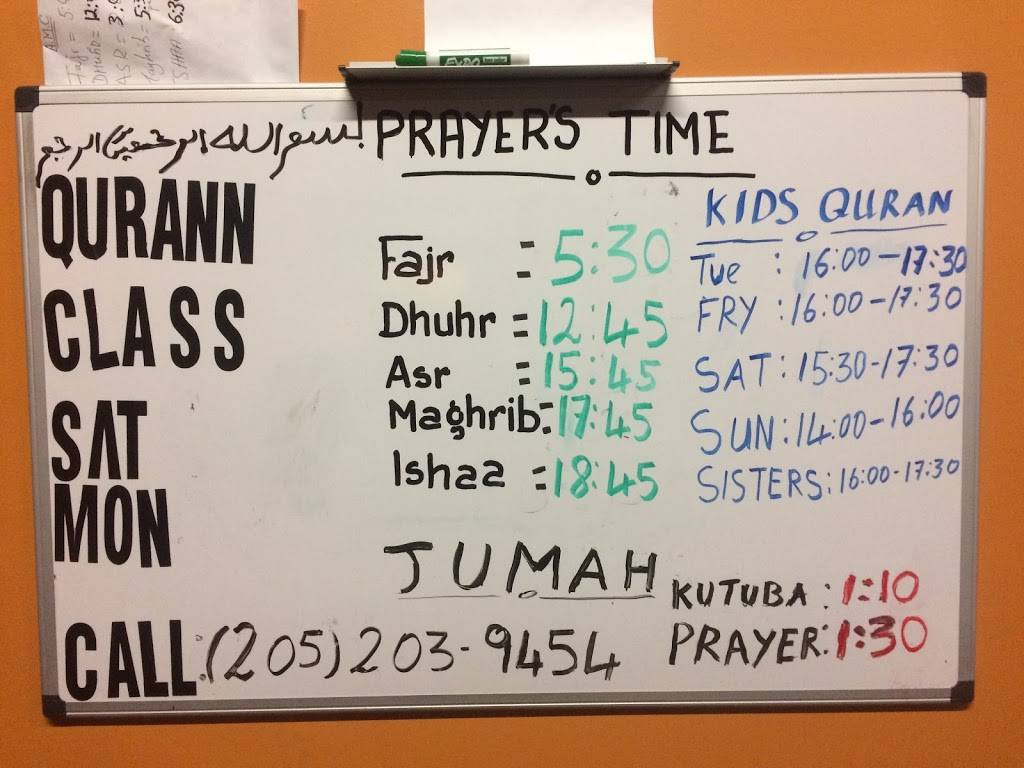 AMC
Fajr = 5:
Dhuhr = 12:
ASR = 3:
Maghrib = 5:3
ISHA 6:30
EXPO
بسم الله الرحمن الرحيم
PRAYER'S TIME
QURANN
CLASS
SAT
MON
Fajr = 5:30
Dhuhr = 12:45
Asr = 15:45
Maghrib = 17:45
Ishaa = 18:45
KIDS QURAN
Tue : 16:00-17:30
FRY : 16:00-17:30
SAT : 15:30-17:30
SUN : 14:00-16:00
SISTERS : 16:00-17:30
JUMAH
KUTUBA : 1:10
PRAYER : 1:30
CALL : (205) 203-9454